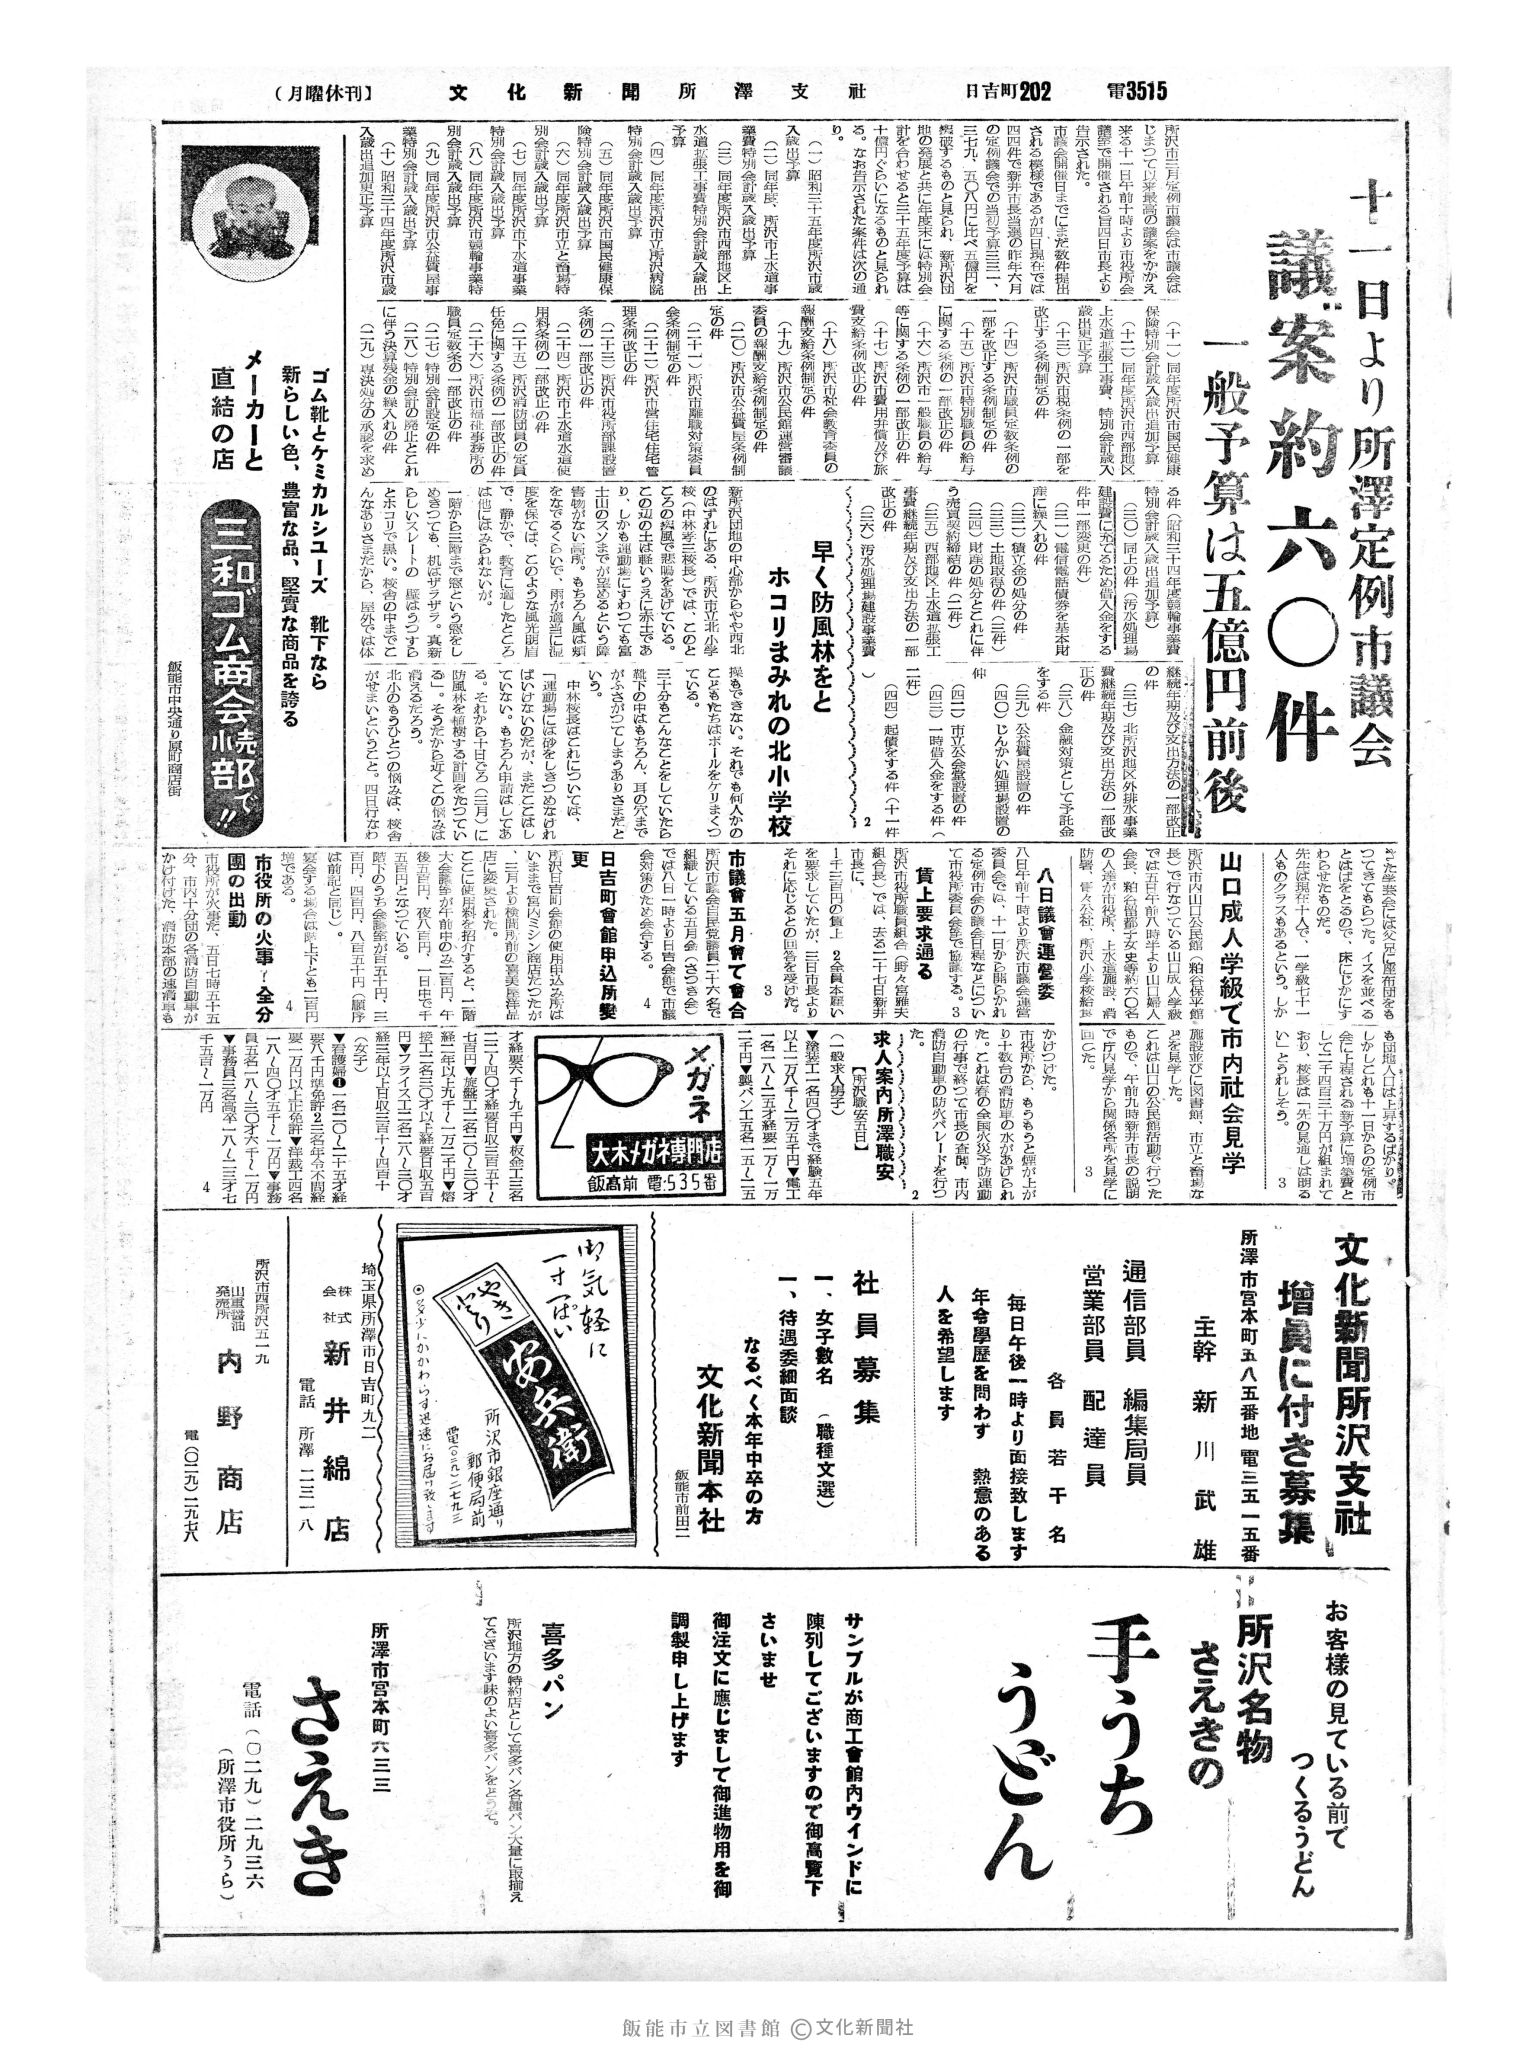 (月曜休刊)
文化新聞所澤支社
日吉町202
電3515
十一日より所澤定例市議会
議案約六〇件
一般予算は五億円前後
所沢市三月定例市議会は市議会は
じまつて以来最高の議案をかかえ
来る十一日午前十時より市役所会
議室で開催される旨四日市長より
告示された。
市議会開催日までにまだ数件提出
される模様であるが四日現在では
四四件で新井市長当選の昨年六月
の定例議会での当初予算三三一、
三七九、五〇八円に比べ五億円を
突破するものと見られ、新所沢団
地の発展と共に年度末には特別会
計を合わせると三十五年度予算は
十億円ぐらいになるものと見られ
る。なお告示された案件は次の通
り。
(一)昭和三十五年度所沢市歳
入歳出予算
(二)同年度、所沢市上水道事
業費特別会計歳入歳出予算
(三)同年度所沢市西部地区上
水道拡張工事費特別会計歳入歳出
予算
(四)同年度所沢市立所沢病院
特別会計歳入歳出予算
(五)同年度所沢市国民健康保
険特別会計歳入歳出予算
(六)同年度所沢市立と畜場特
別会計歳入歳出予算
(七)同年度所沢市下水道事業
特別会計歳入歳出予算
(八)同年度所沢市競輪事業特
別会計歳入歳出予算
(九)同年度所沢市公益質屋事
業特別会計歳入歳出予算
(十)昭和三十四年度所沢市歳
入歳出追加更正予算
(十一)同年度所沢市国民健康
保険特別会計歳入歳出追加予算
(十二)同年度所沢市西部地区
上水道拡張工事費、特別会計歳入
歳出更正予算
(十三)所沢市税条例の一部を
改正する条例制定の件
(十四)所沢市職員定数条例の
一部を改正する条例制定の件
(十五)所沢市特別職員の給与
に関する条例の一部改正の件
(十六)所沢市一般職員の給与
等に関する条例の一部改正の件
(十七)所沢市費用弁償及び旅
費支給条例改正の件
(十八)所沢市社会教育委員の
報酬支給条例制定の件
(十九)所沢市公民館運営審議
委員の報酬支給条例制定の件
(二〇)所沢市公益質屋条例制
定の件
(二十一)所沢市離職対策委員
会条例制定の件
(二十二)所沢市営住宅住宅管
理条例改正の件
(二十三)所沢市役所部課設置
条例の一部改正の件
(二十四)所沢市上水道水道使
用料条例の一部改正の件
(二十五)所沢消防団員の定員
任免に関する条例の一部改正の件
(二十六)所沢市福祉事務所の
職員定数条の一部改正の件
(二七)特別会計設定の件
(二八)特別会計の廃止とこれ
に伴う決算残金の繰入れの件
(二九)専決処分の承認を求め
る件(昭和三十四年度競輪事業費
特別会計歳入歳出追加予算)
(三〇)同上の件(汚水処理場
建設費に充てるため借入金をする
件中一部変更の件)
(三一)電信電話債券を基本財
産に繰入れの件
(三二)積立金の処分の件
(三三)土地取得の件(三件)
(三四)財産の処分とこれに伴
う売買契約締結の件(二件)
(三五)西部地区上水道拡張工
事費継続年期及び支出方法の一部
改正の件
(三六)汚水処理場建設事業費
継続年期及び支出方法の一部改正
の件
(三七)北所沢地区外排水事業
費継続年期及び支出方法の一部改
正の件
(三八)金融対策として予託金
をする件
(三九)公益質屋設置の件
(四〇)じんかい処理場設置の
件
(四二)市立公会堂設置の件
(四三)一時借入金をする件(
二件)
(四四)起債をする件(十一件
)
2
早く防風林をと
ホコリまみれの北小学校
新所沢団地の中心部からやや西北
のはずれにある、所沢市立北小学
校(中林孝三校長)では、このと
ころの強風で悲鳴をあげている。
この辺の土は軽いうえに赤土であ
り、しかも運動場にすわつても富
士山のスソまでが望めるという障
害物がない高所。もちろん風は頬
をなでるくらいで、雨が適当に湿
度を保てば、このような風光明眉
で、静かで、教育に適したところ
は他にはみられないが。
一階から三階まで窓という窓をし
めきつても、机はザラザラ。真新
らしいスレートの壁はうつすら
とホコリで黒い。校舎の中までこ
んなありさまだから、屋外では体
操もできない。それでも何人かの
こどもたちはボールをケリまくつ
ている。
三十分もこんなことをしていたら
靴下の中はもちろん、耳の穴まで
がふさがつてしまうありさまだと
いう。
中林校長はこれについては、
「運動場には砂をしきつめなけれ
ばいけないのだが、まだこどばし
ていない。もちろん申請はしてあ
る。それから十日ごろ(三月)に
防風林を植樹する計画をたつてい
る」。そうだから近くこの悩みは
消えるだろう。
北小のもうひとつの悩みは、校舎
がせまいということ。四日行なわ
れた学芸会には父兄に座布団をも
つてきてもらつた。イスを並べる
とはばをとるので、床にじかにす
わらせたものだ。
先生は現在十人で、一学級十十一
人ものクラスもあるという。しか
も団地人口は上昇するばかり。
しかしこれも十一日からの定例市
会に上程される新予算に増築費と
して二千四百三十万円が組まれて
おり、校長は「先の見通しは明る
い」とうれしそう。
3
山口成人学級で市内社会見学
所沢市内山口公民館(粕谷保平館
長)で行なつている山口成人学級
では五日午前八時半より山口婦人
会長、粕谷留都子女史等約六〇名
の人達が市役所、上水道施設、消
防署、
所沢小学校給食
施設並びに図書館、市立と畜場な
どを見学した。
これは山口の公民館活動で行つた
もので、午前九時新井市長の説明
で庁内見学から関係各所を見学に
回つた。
3
八日議會運営委
八日午前十時より所沢市議会運営
委員会では、十一日から開らかれ
る定例市会の議会日程などについ
て市役所委員会室で協議する。3
賃上要求通る
所沢市役所職員組合(野々宮雅夫
組合長)では、去る二十七日新井
市長に、
1千三百円の賃上 2全員本雇い
を要求していたが、三日市長より
それに応じるとの回答を受けた。
3
市議會五月會で會合
所沢市議会自民党議員二十六名で
組織している五月会(さつき会)
では八日一時より日吉会館で市議
会対策のため会合する。
4
日吉町會館申込所變
更
所沢日吉町会館の使用申込み所は
いままで宮内ミシン商店だつたが
、三月より検問所前の喜美屋洋品
店に変更された。
ここに使用料を紹介すると、一階
大会議室が午前中のみ二百円、午
後五百円、夜八百円、一日中で千
五百円となつている。
階下のうち会議室が百五十円、三
百円、四百円、八百五十円(順序
は前記と同じ)。
宴会する場合は階上下とも二百円
増である。
4
市役所の火事に全分
團の出動
市役所が火事だ、五日七時五十五
分、市内十分団の各消防自動車が
かけ付けた、消防本部の速消車も
かけつけた。
市役所から、もうもうと煙が上が
り十数台の消防車の水があげられ
た。これは春の全国火災予防運動
の行事で終つて市長の査閲、市内
消防自動車の防火パレードを行つ
た。
2
求人案内所澤職安
【所沢職安五日】
(一般求人男子)
▼塗装工一名四〇才まで経験五年
以上一万八千〜二万五千円▼電工
一名一八〜二五才経要一万〜一万
二千円▼製パン工五名一五〜二五
才経要六千〜九千円▼板金工三名
二二〜四〇才経要日収三百五十〜
七百円▼旋盤工二名二〇〜三〇才
経二年以上九千〜一万二千円▼熔
接工二名三〇才以上経要日収五百
円▼フライス工二名二八〜三〇才
経三年以上日収三百十〜四百十
(女子)
▼看護婦❶一名二〇〜二十五才経
要八千円準免許2三名年令不問経
要一万円以上正免許▼洋裁工四名
一八〜四〇才五千〜一万円▼事務
員五名一八〜三〇才六千〜一万円
▼事務員三名高卒一八〜二三才七
千五百〜一万円
4
メガネ
大木メガネ専門店
飯高前 電.535番
ゴム靴とケミカルシユーズ 靴下なら
新らしい色、豊富な品、堅實な商品を誇る
メーカーと
直結の店
三和ゴム商会小売部で!!
飯能市中央通り原町商店街
文化新聞所沢支社
増員に付き募集
所澤市宮本町五八五番地 電三五一五番
主幹 新川武雄
通信部員 編集局員
営業部員 配達員
各員若干名
毎日午後一時より面接致します
年令學歴を問わず 熱意のある
人を希望します
社員募集
一、女子數名 (職種文選)
一、待遇委細面談
なるべく本年中卒の方
文化新聞本社
飯能市前田二
御気軽に
一寸一ぱい
やきとり
安兵衛
所沢市銀座通り
郵便局前
電(〇二九)二七九三
⊙多少にかかわらず迅速にお届け致します
埼玉県所澤市日吉町九二
株式会社 新井綿店
電話 所澤 二三一八
所沢市西所沢五一九
山重醤油
発売所
内野商店
電(〇二九)二九七八
お客様の見ている前で
つくるうどん
所沢名物
さえきの
手うち
うどん
サンプルが商工會館内ウインドに
陳列してございますので御高覧下
さいませ
御注文に應じまして御進物用を御
調製申し上げます
喜多パン
所沢地方の特約店として喜多パン各種パン大量に取揃え
てございます味のよい喜多パンをどうぞ。
所澤市宮本町六三三
さえき
電話(〇二九)二九三六
(所澤市役所うら)
飯能市立図書館 ©文化新聞社